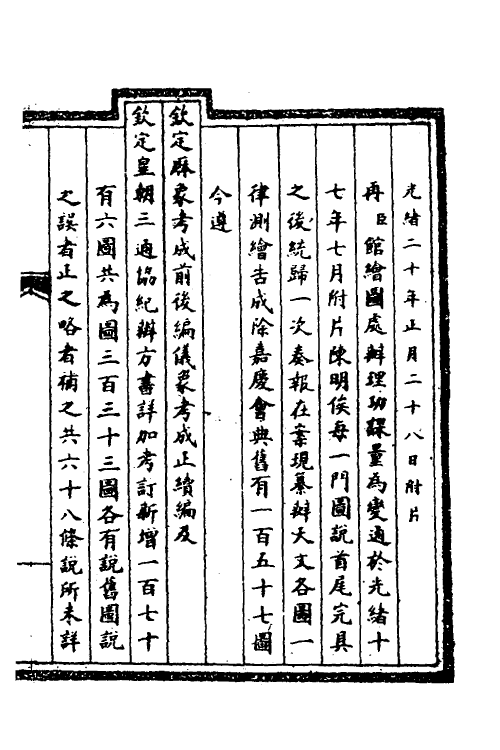 光緒二十年正月二十八日附片
再臣館繪圖處辦理功課量為變通於光緒十
七年七月附片陳明俟每一門圖說首尾完具
之後統歸一次奏報在案現纂辦天文各圖一
律測繪告成除嘉慶會典舊有一百五十七圖
今遵
欽定厤象考成前後編儀象考成正續編及
欽定皇朝三通協紀辦方書詳加考訂新增一百七十
有六圖共為圖三百三十三圖各有說舊圖說
之誤者正之略者補之共六十八條說所未詳